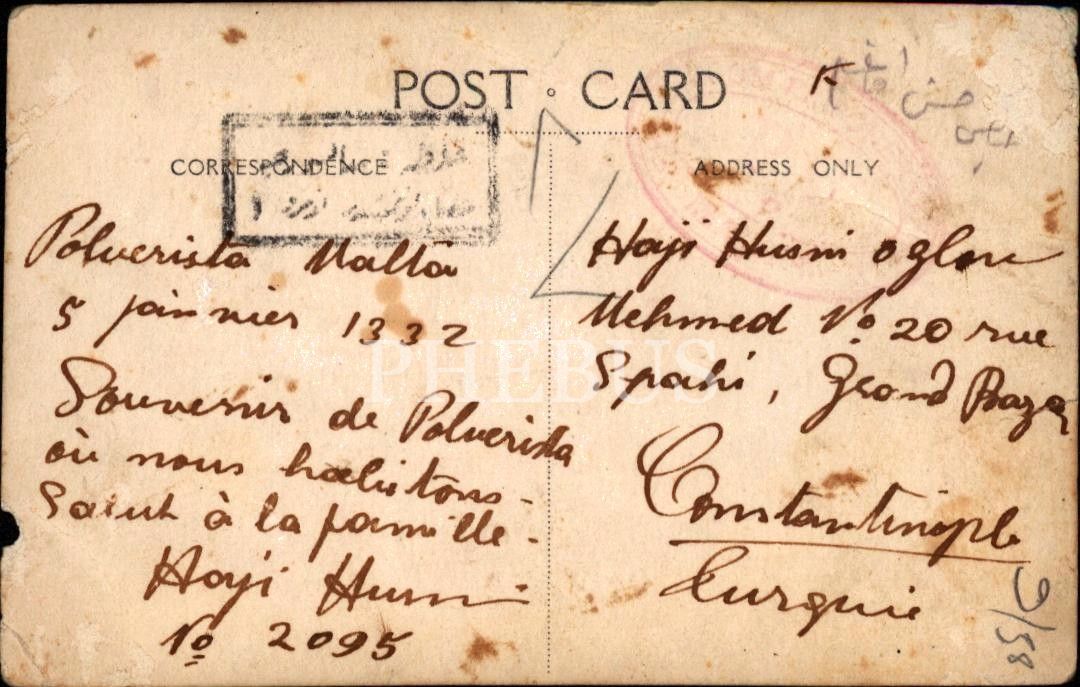 POST CARD
CORRESPONDENCE
ADDRESS ONLY
Polverista Malta
5 janvier 1332
Souvenir de Polverista
où nous habitons -
Salut à la famille -
Haji Husni
No 2095
Haji Husni oglou
Mehmed No 20 rue
Spahi, Grand Bazar
Constantinople
Turquie
9/58
PHEBUS